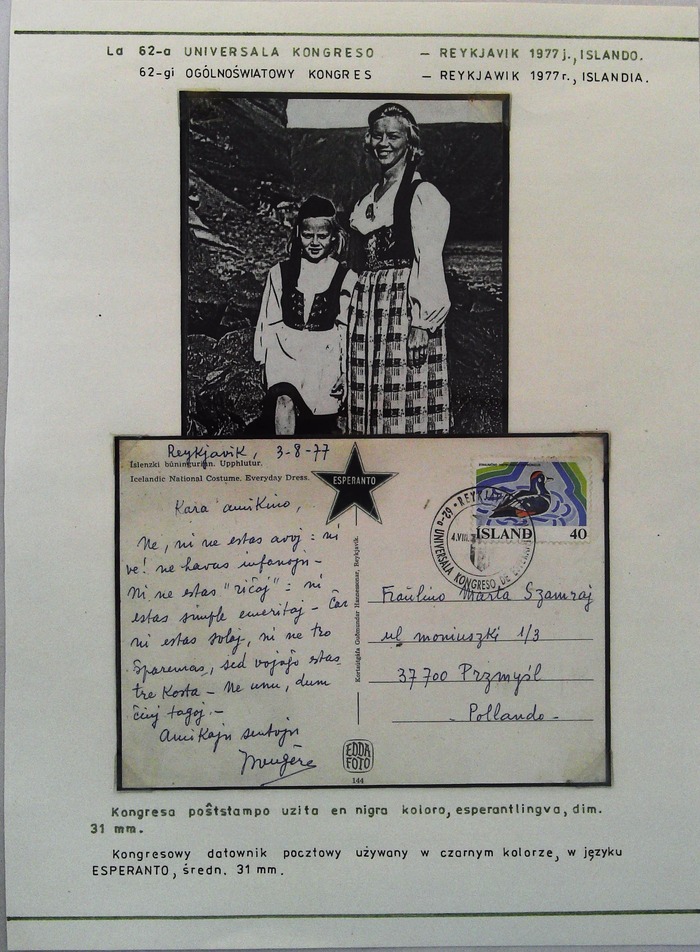 La 62-a UNIVERSALA KONGRESO – REYKJAVIK 1977 j., ISLANDO.
62-gi OGÓLNOŚWIATOWY KONGRES – REYKJAWIK 1977 r., ISLANDIA.
Reykjavik, 3-8-77
Íslenzki búningurinn. Upphlutur.
Icelandic National Costume. Everyday Dress.
ESPERANTO
Kara amikino,
Ne, ni ne estas avoj : ni
ve! ne havas infanojn –
Ni ne estas "riĉaj" : ni
estas simple emeritoj – Ĉar
ni estas solaj, ni ne tro
ŝparemas, sed vojaĝo estas
tre kosta – Ne unu, dum
ĉiuj tagoj. –
Amikajn sentojn
Kortaútgáfa Guðmundar Hannessonar, Reykjavík.
EDDA
FOTO
144
ÍSLAND 40
62-a UNIVERSALA KONGRESO DE
REYKJAVIK
4.VIII.
Fraŭlino Marta Szamraj
ul moniuszki 1/3
37700 Przmyśl
- Pollando -
Kongresa poŝtstampo uzita en nigra koloro, esperantlingva, dim.
31 mm.
Kongresowy datownik pocztowy używany w czarnym kolorze, w języku
ESPERANTO, średn. 31 mm.